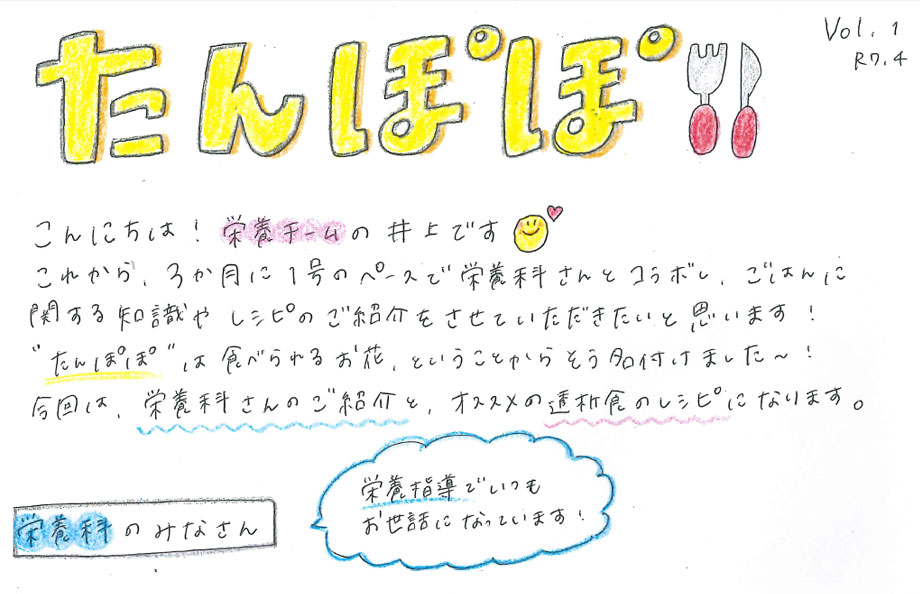 たんぽぽ
Vol. 1
R7.4
こんにちは！栄養チームの井上です
これから、3か月に1号のペースで栄養科さんとコラボし、ごはんに
関する知識やレシピのご紹介をさせていただきたいと思います！
"たんぽぽ"は食べられるお花、ということからそう名付けました～！
今回は、栄養科さんのご紹介と、オススメの透析食のレシピになります。
栄養指導でいつも
お世話になっています！
栄養科のみなさん